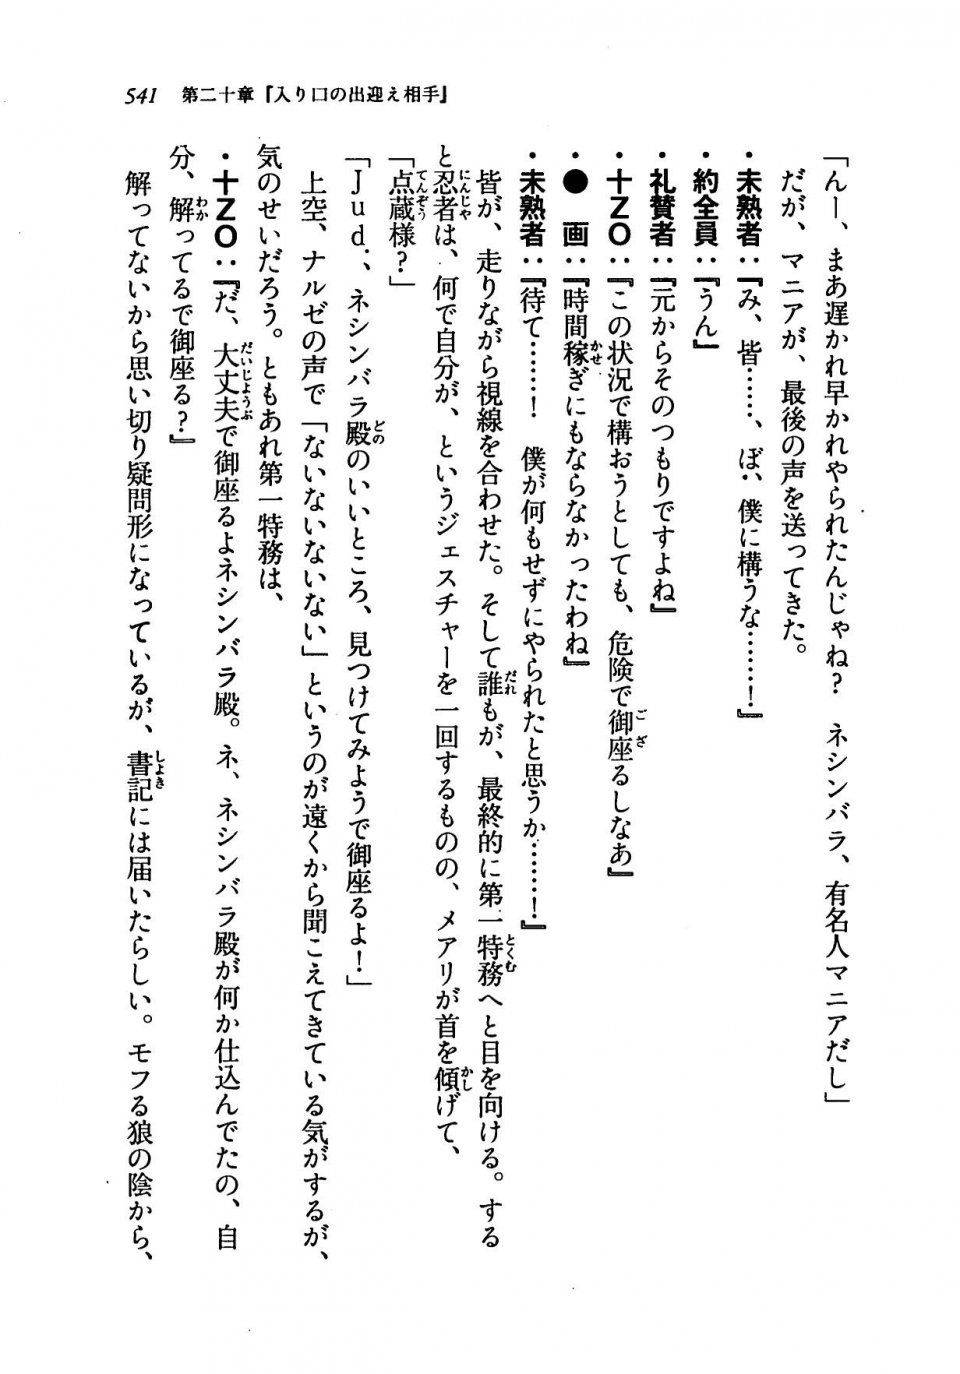 541 第二十章『入り口の出迎え相手』
「んー、まあ遅かれ早かれやられたんじゃね? ネシンバラ、有名人マニアだし」
だが、マニアが、最後の声を送ってきた。
・未熟者:『み、皆……、ぼ、僕に構うな……!』
・約全員:『うん』
・礼賛者:『元からそのつもりですよね』
・十ZO:『この状況で構おうとしても、危険で御座るしなあ』
・● 画:『時間稼ぎにもならなかったわね』
・未熟者:『待て……! 僕が何もせずにやられたと思うか……!』
皆が、走りながら視線を合わせた。そして誰もが、最終的に第一特務へと目を向ける。する
と忍者は、何で自分が、というジェスチャーを一回するものの、メアリが首を傾げて、
「点蔵様?」
「Jud.、ネシンバラ殿のいいところ、見つけてみようで御座るよ!」
上空、ナルゼの声で「ないないないない」というのが遠くから聞こえてきている気がするが、
気のせいだろう。ともあれ第一特務は、
・十ZO:『だ、大丈夫で御座るよネシンバラ殿。ネ、ネシンバラ殿が何か仕込んでたの、自
分、解ってるで御座る?』
解ってないから思い切り疑問形になっているが、書記には届いたらしい。モフる狼の陰から、